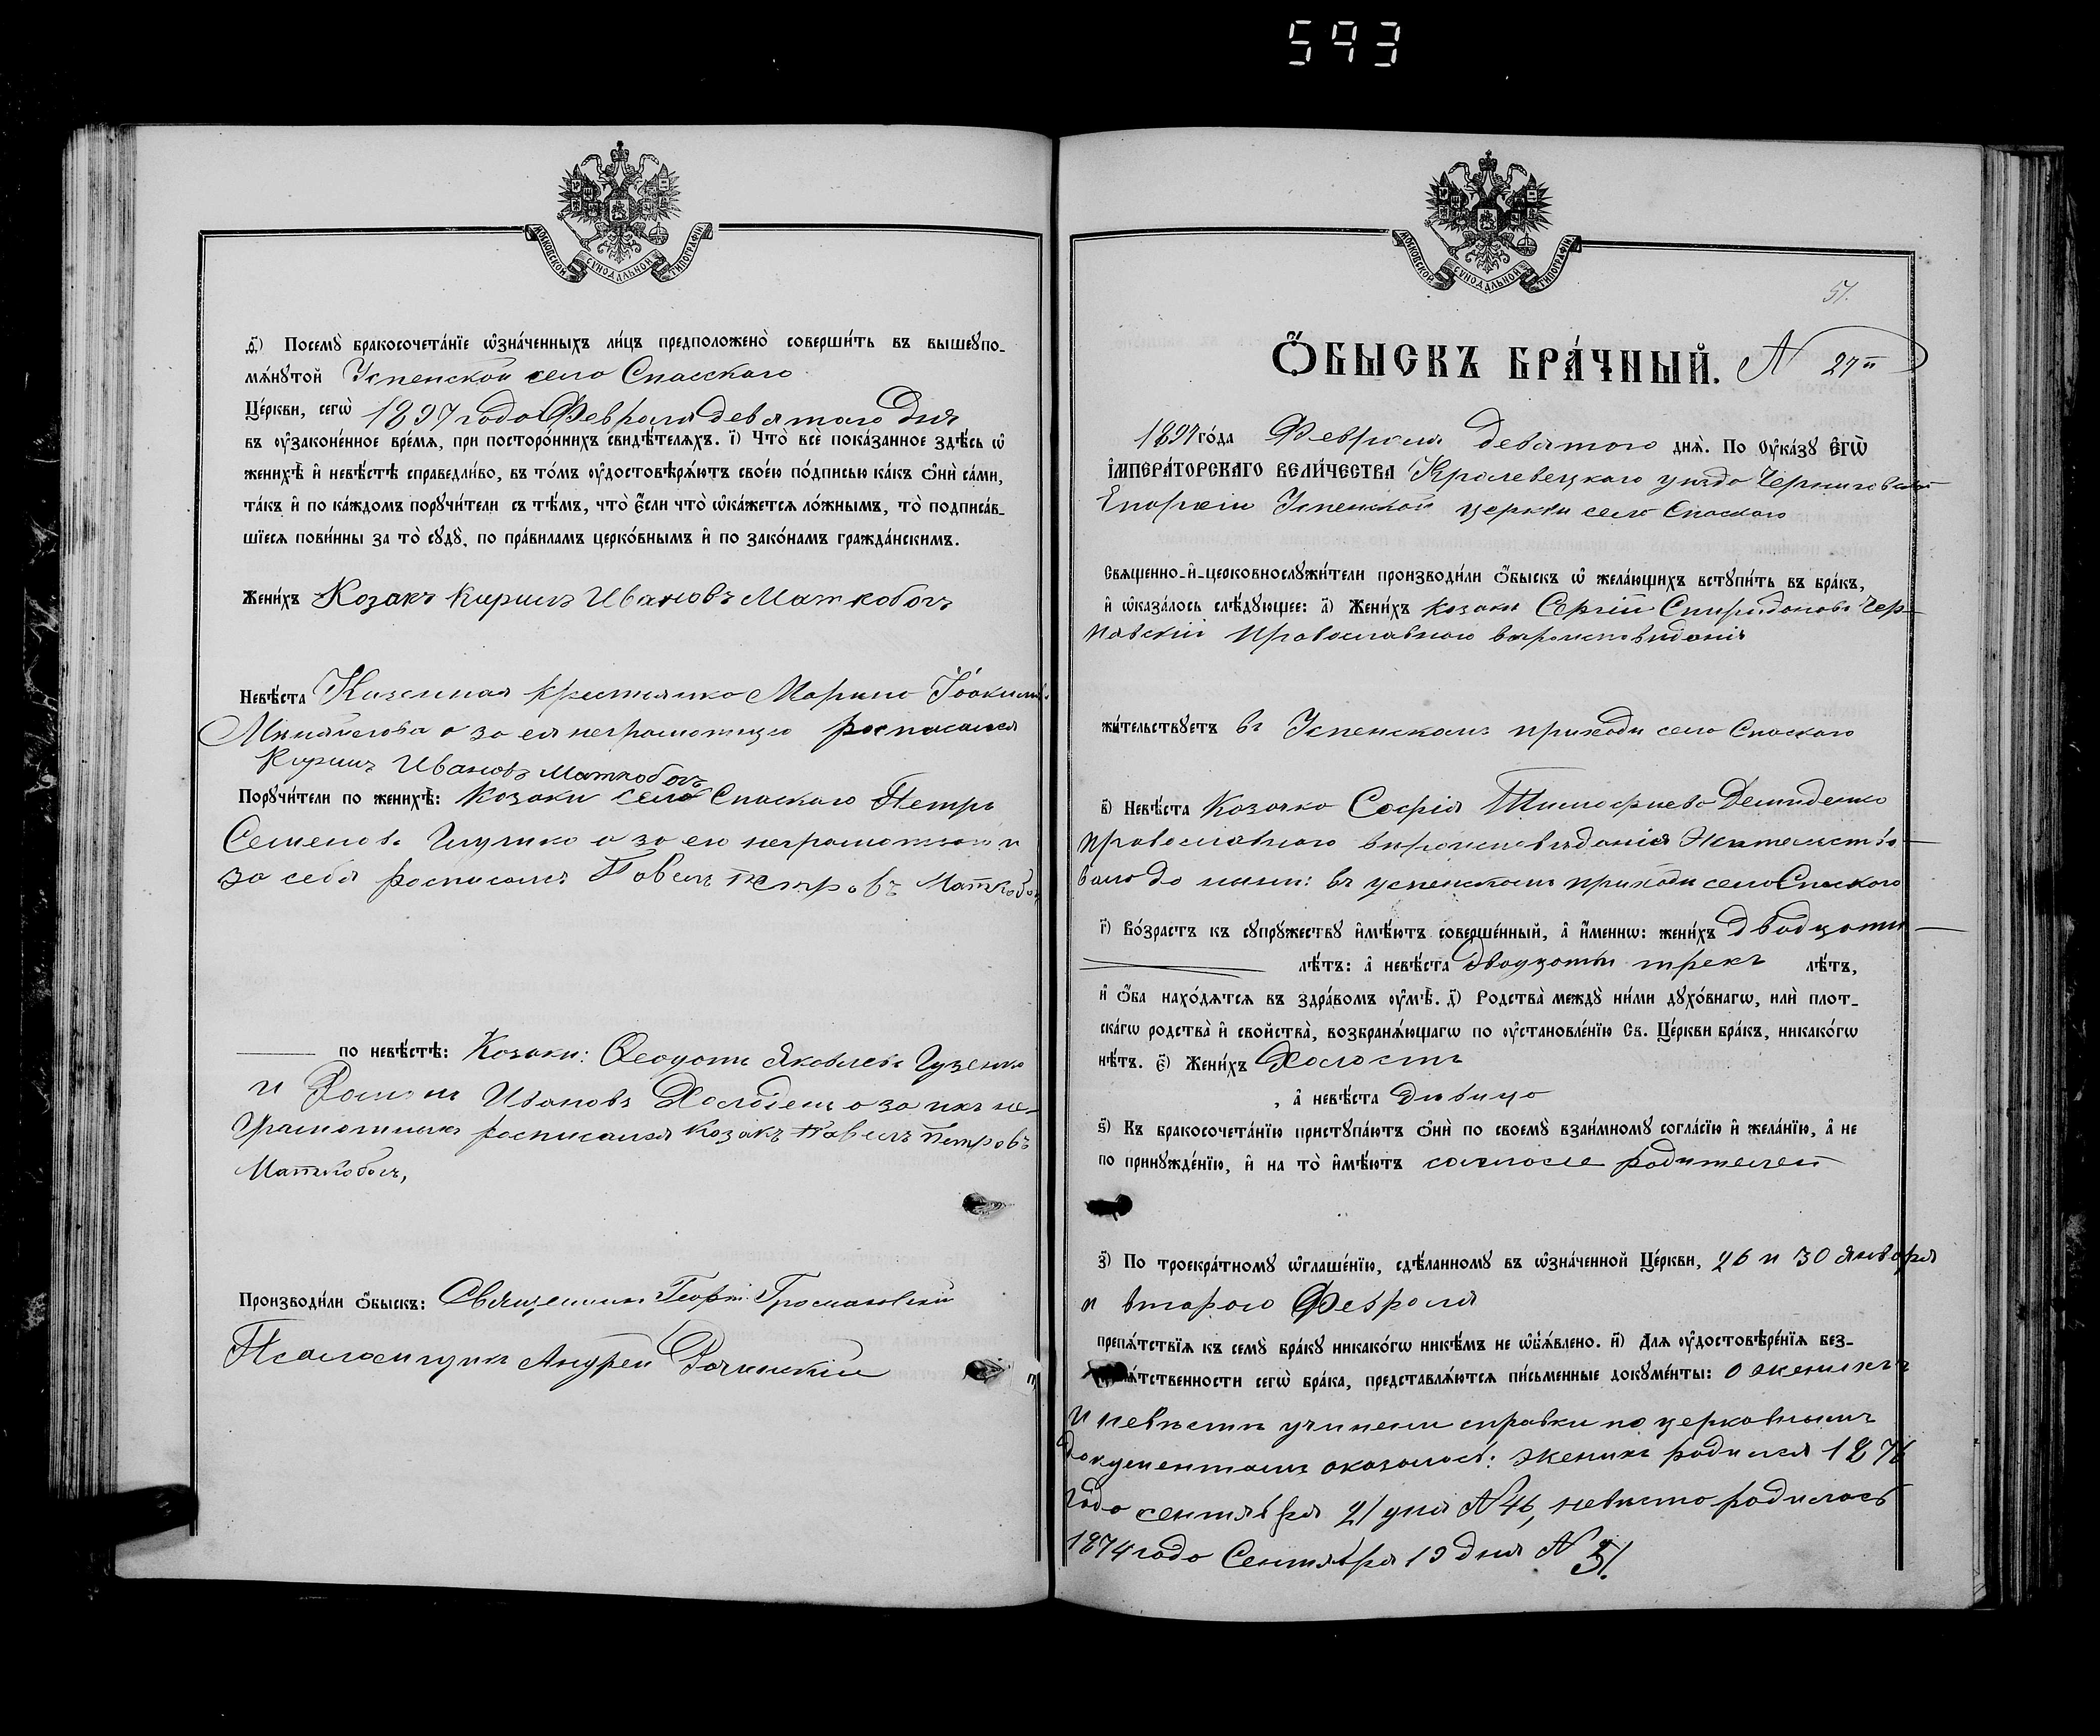 593
МОСКОВСКОЙ СѴНОДАЛЬНОЙ ТИПОГРАФІИ
ѳ҃) Посемꙋ̀ бракосочета́нїе ѡ҆зна́ченныхъ ли́цъ предположено̀ соверши́ть въ вышеꙋпо-
мѧ́нꙋтой Успенской села Спасскаго
Це́ркви, сегѡ̀ 1897 года Февраля девятаго дня
въ ᲂу҆законе́нное вре́мѧ, при посторо́ннихъ свидѣ́телѧхъ. і҃) Что̀ всѐ пока́занное здѣ́сь ѡ҆
женихѣ̀ и҆ невѣ́стѣ справедли́во, въ то́мъ ᲂу҆достовѣрѧ́ютъ свое́ю по́дписью ка́къ ѻ҆нѝ са́ми,
та́къ и҆ по ка́ждомъ порꙋчи́тели съ тѣ́мъ, что̀ є҆́сли что̀ ѡ҆ка́жетсѧ ло́жнымъ, то̀ подписа́в-
шїесѧ пови́нны за то̀ сꙋдꙋ̀, по пра́виламъ церко́внымъ и҆ по зако́намъ гражда́нскимъ.
Жени́хъ Козакъ Кирилъ Ивановъ Маткобогъ
Невѣ́ста Казенная крестьянка Марина
а за ея неграмотную росписался
Кирилъ Ивановъ Маткобогъ
Порꙋчи́тели по женихѣ̀: Козаки села Спаскаго Петръ
Семеновъ а за его неграмотнаго и
за себя росписался Павелъ Петровъ Маткобогъ
по невѣ́стѣ: Козаки: Ѳеодотъ Яковлевъ Гузенко
и Романъ Ивановъ а за ихъ не-
грамотныхъ росписался козакъ Павелъ Петровъ
Маткобогъ,
Производи́ли ѻ҆́быскъ: Священникъ Георгій Громаковскій
Псаломщикъ Андрей Рачинскій
МОСКОВСКОЙ СѴНОДАЛЬНОЙ ТИПОГРАФІИ
51.
Ѻ҆́БЫСКЪ БРА́ЧНЫЙ. N 27й
1897 го́да Февраля девятаго днѧ̀. По Оу҆ка́зꙋ Є҆гѡ̀
І҆мпера́торскаго вели́чества Кролевецкаго уезда Черниговской
Епархіи Успенской церкви села Спаскаго
Свѧщенно-и҆-церковнослꙋжи́тели производи́ли ѻ҆́быскъ ѡ҆ жела́ющихъ встꙋпи́ть въ бра́къ,
и҆ ѡ҆каза́лось слѣ́дꙋющее: а҃) Жени́хъ козакъ Сергій Спиридоновъ Чер-
нявскій православнаго вѣроисповѣданія
жи́тельствꙋетъ въ Успенскомъ приходѣ села Спаскаго
в҃) Невѣ́ста Козачка Софія Тимофіева Демиденко
православнаго вѣроисповѣданія Жительство-
вала до нынѣ: въ успенскомъ приходѣ села Спаскаго
г҃) Во́зрастъ къ сꙋпрꙋ́жествꙋ и҆мѣ́ютъ соверше́нный, а҆ и҆́меннѡ: жени́хъ двадцати
лѣ́тъ: а҆ невѣ́ста двадцати трехъ лѣ́тъ,
и҆ ѻ҆́ба нахо́дѧтсѧ въ здра́вомъ ᲂу҆мѣ̀. д҃) Родства̀ междꙋ̀ ни́ми дꙋхо́внагѡ, илѝ плот-
ска́гѡ родства̀ и҆ свойства̀, возбранѧ́ющагѡ по ᲂу҆становле́нїю Св. Це́ркви бра́къ, никако́гѡ
нѣ́тъ. є҃) Жени́хъ Холостъ
, а҆ невѣ́ста Дѣвица
ѕ҃) Къ бракосочета́нїю пристꙋпа́ютъ ѻ҆нѝ по своемꙋ̀ взаи́мномꙋ согла́сїю и҆ жела́нїю, а҆ не
по принꙋжде́нїю, и҆ на то̀ и҆мѣ́ютъ согласіе родителей
з҃) По троекра́тномꙋ ѡ҆глаше́нїю, сдѣ́ланномꙋ въ ѡ҆зна́ченной Це́ркви, 26 и 30 января
и второго Февраля
препѧ́тствїѧ къ семꙋ̀ бра́кꙋ никако́гѡ никѣ́мъ не ѡ҆б̾ѧ́влено. и҃) Длѧ ᲂу҆достовѣре́нїѧ без-
ѧ́тственности сегѡ̀ бра́ка, представлѧ́ютсѧ пи́сьменные докꙋме́нты: о женихѣ
и невѣстѣ учинены справки по церковнымъ
документамъ оказалось: женихъ родился 1876
года сентября 21 дня N 46, невѣста родилась
1874 года Сентября 19 дня N 51.